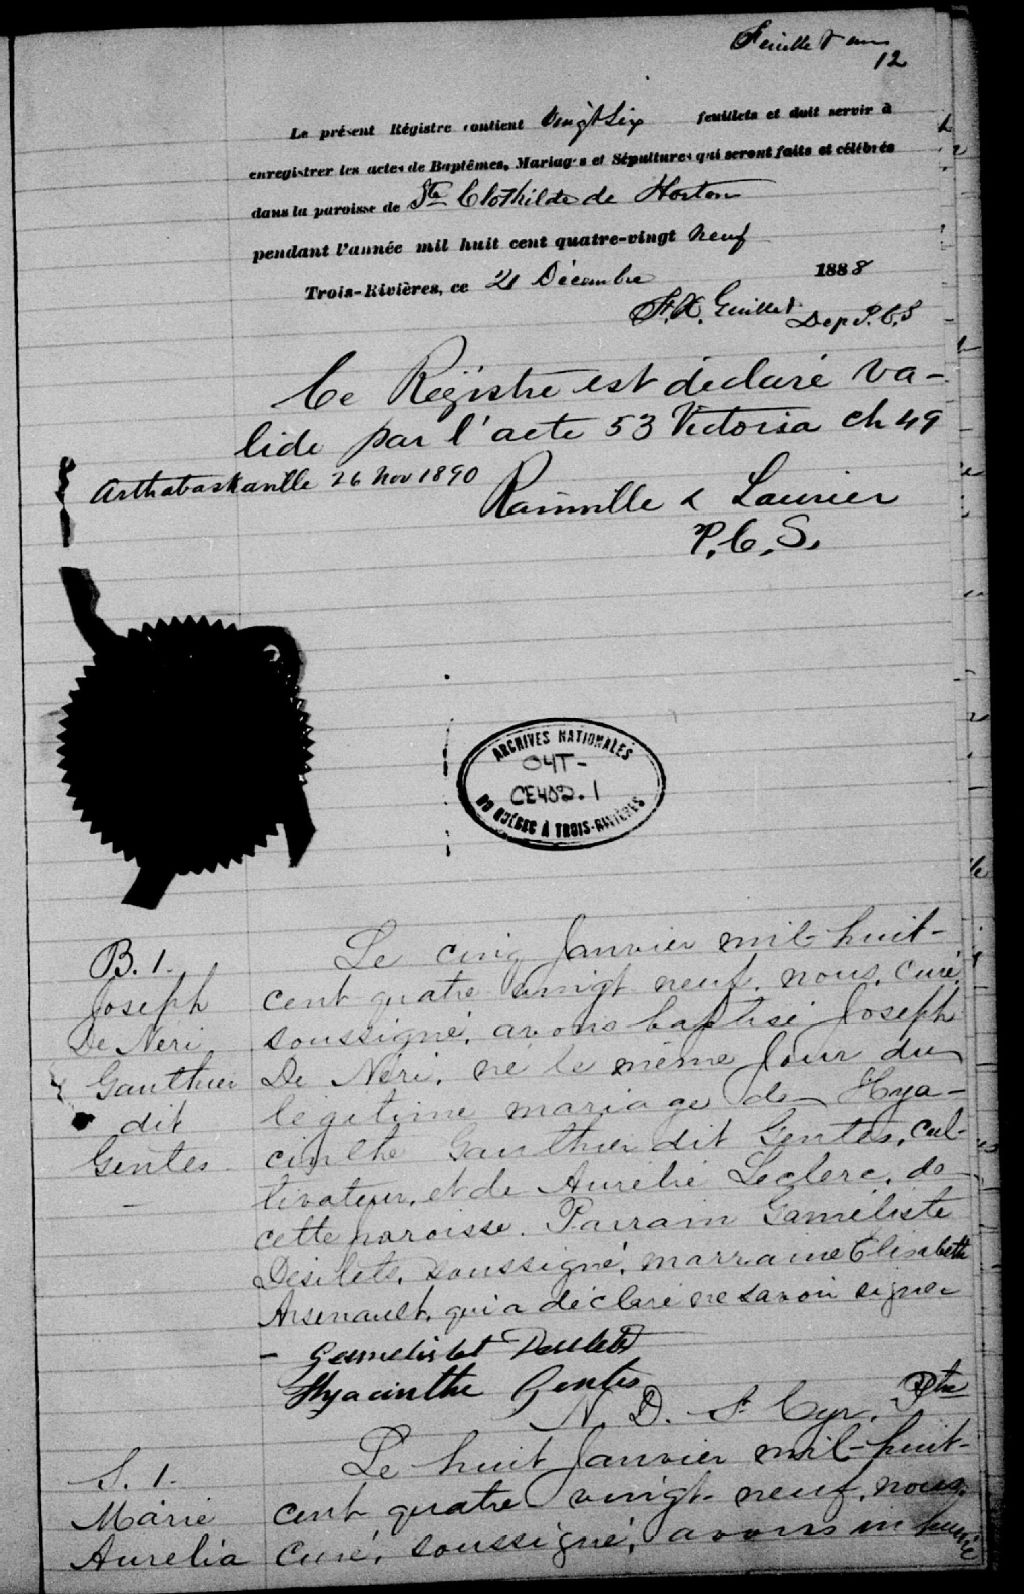 Feuillet
12
Le présent Régistre contient Vingt Six feuillets et doit servir à
enregistrer les actes de Baptêmes, Mariages et Sépultures qui seront faits et célébrés
dans la paroisse de Ste Clothilde de Horton
pendant l'année mil huit cent quatre-vingt neuf
Trois-Rivières, ce 21 Décembre 1888
Guillet Dep P.C.S
Ce Régistre est déclaré va-
lide par l'acte 53 Victoria ch 49
Arthabaskaville 26 Nov 1890
Rainville & Laurier
P.C.S.
ARCHIVES NATIONALES
04T-
CE402.1
DU QUÉBEC À TROIS-RIVIÈRES
B. 1.
Joseph
De Néri
Gauthier
dit
Gentes
Le cinq Janvier mil-huit-
cent quatre vingt neuf, nous, curé
soussigné, avons baptisé Joseph
De Néri, né le même jour du
légitime mariage de Hya-
cinthe Gauthier dit Gentes, cul-
tivateur, et de Aurélie Leclerc, de
cette paroisse. Parrain Gaméliste
Désilets, soussigné, marraine Elisabeth
Arsenault, qui a déclaré ne savoir signer
Hyacinthe Gentes
N. D. St Cyr, Ptre
S. 1.
Marie
Aurelia
Le huit Janvier mil-huit-
cent quatre vingt-neuf, nous,
curé, soussigné, avons inhumé